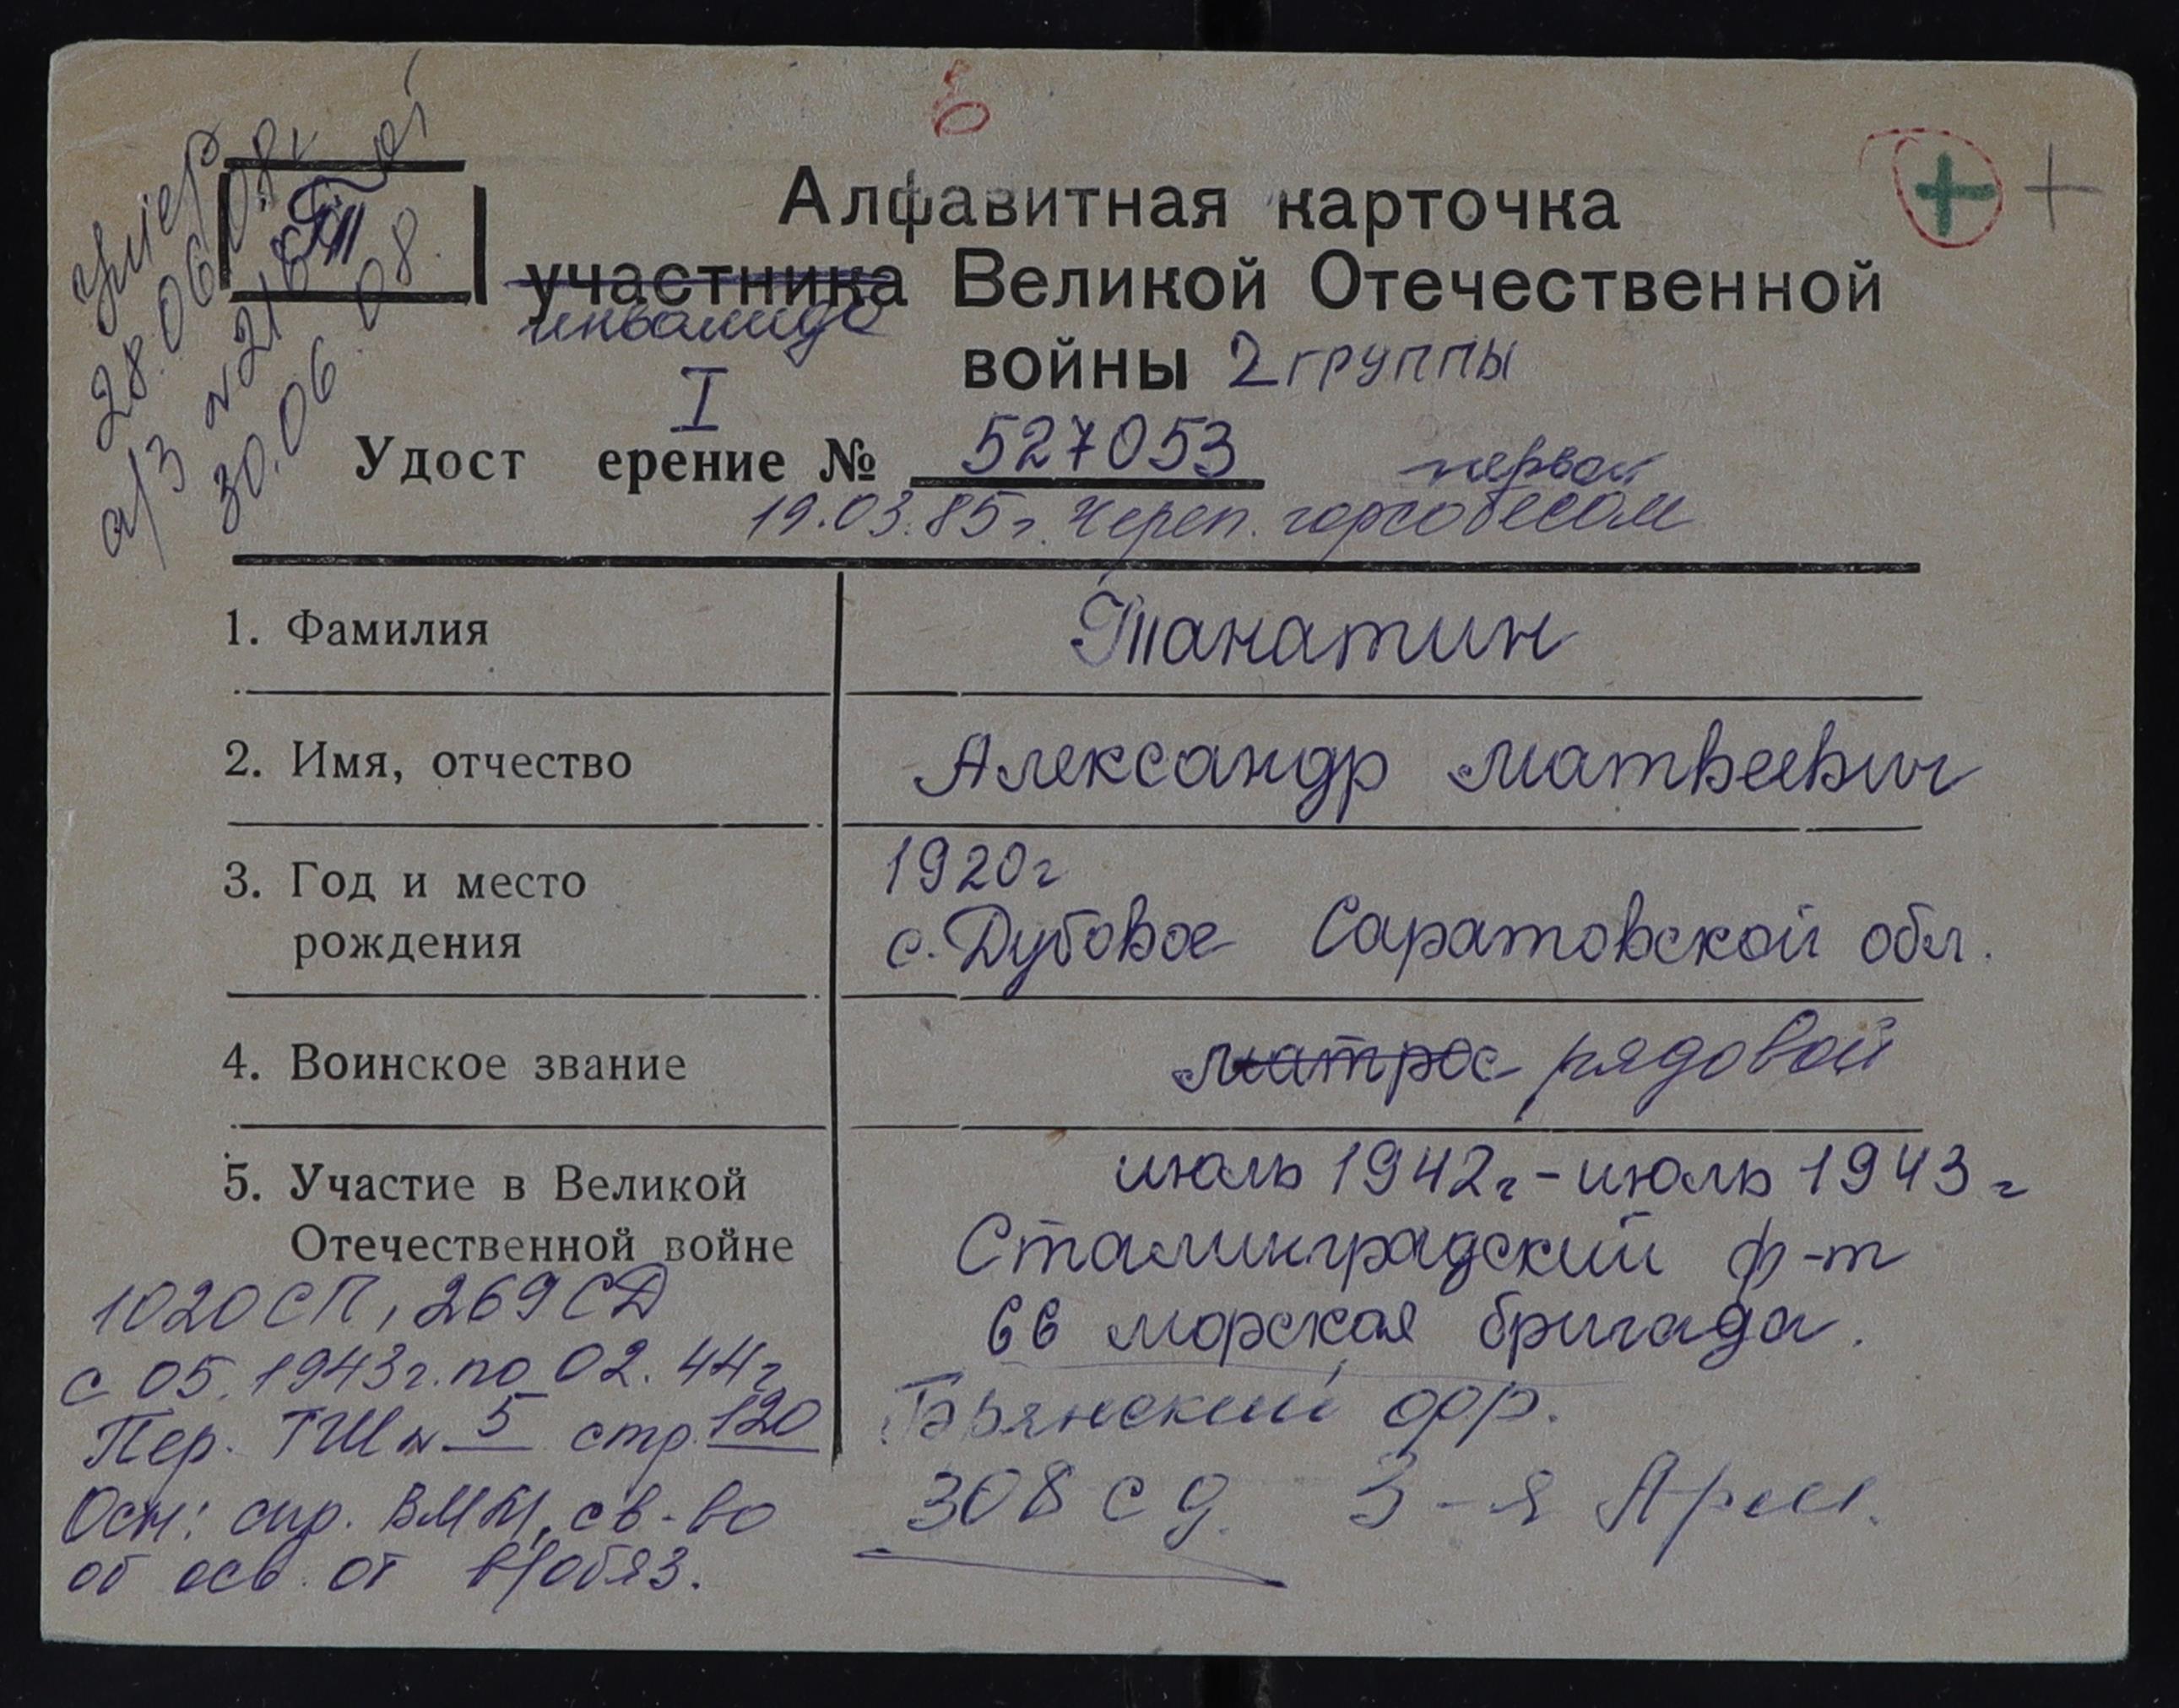 умер
28.06.08г
а/з №216
30.06.08.
Т
Алфавитная карточка
участника Великой Отечественной
инвалида
войны 2 группы
I
Удост ерение № 527053
первой
19.03.85г. Череп. горсобесом
1. Фамилия Танатин
2. Имя, отчество Александр Матвеевич
3. Год и место рождения
1920г
с. Дубовое Саратовской обл.
4. Воинское звание матрос рядовой
5. Участие в Великой Отечественной войне
июль 1942г - июль 1943г
Сталинградский ф-т
66 морская бригада.
Брянский фр.
308 сд. 3-я Арм.
1020 СП, 269 СД
с 05.1943г. по 02.44г
Пер. ГШ № 5 стр. 120
Осн: спр. ВММ, св-во
об осв. от в/обяз.